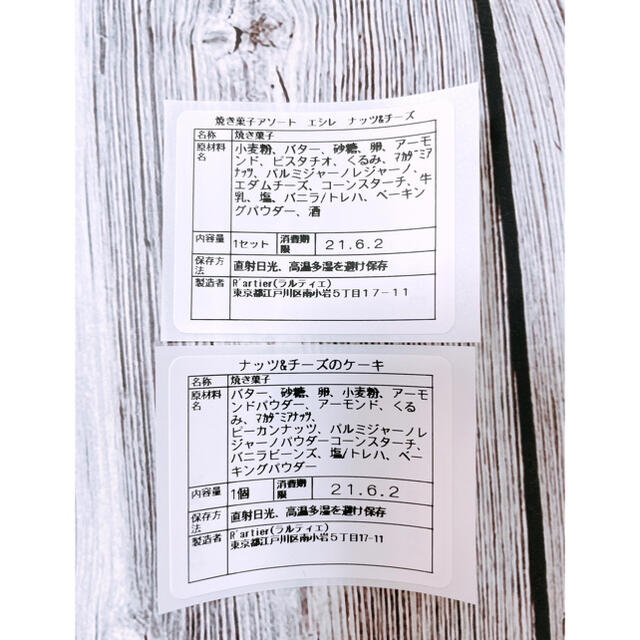 焼き菓子アソート エシレ ナッツ&チーズ
名称 焼き菓子
原材料名 小麦粉、バター、砂糖、卵、アーモ
ンド、ピスタチオ、くるみ、ﾏｶﾀﾞﾐｱ
ﾅｯﾂ、パルミジャーノレジャーノ、
エダムチーズ、コーンスターチ、牛
乳、塩、バニラ/トレハ、ベーキン
グパウダー、酒
内容量 1セット 消費期限 21.6.2
保存方法 直射日光、高温多湿を避け保存
製造者 R'artier(ラルティエ)
東京都江戸川区南小岩5丁目17-11
ナッツ&チーズのケーキ
名称 焼き菓子
原材料名 バター、砂糖、卵、小麦粉、アーモ
ンドパウダー、アーモンド、くる
み、ﾏｶﾀﾞﾐｱﾅｯﾂ、
ピーカンナッツ、パルミジャーノレ
ジャーノパウダーコーンスターチ、
バニラビーンズ、塩/トレハ、ベー
キングパウダー
内容量 1個 消費期限 21.6.2
保存方法 直射日光、高温多湿を避け保存
製造者 R'artier(ラルティエ)
東京都江戸川区南小岩5丁目17-11